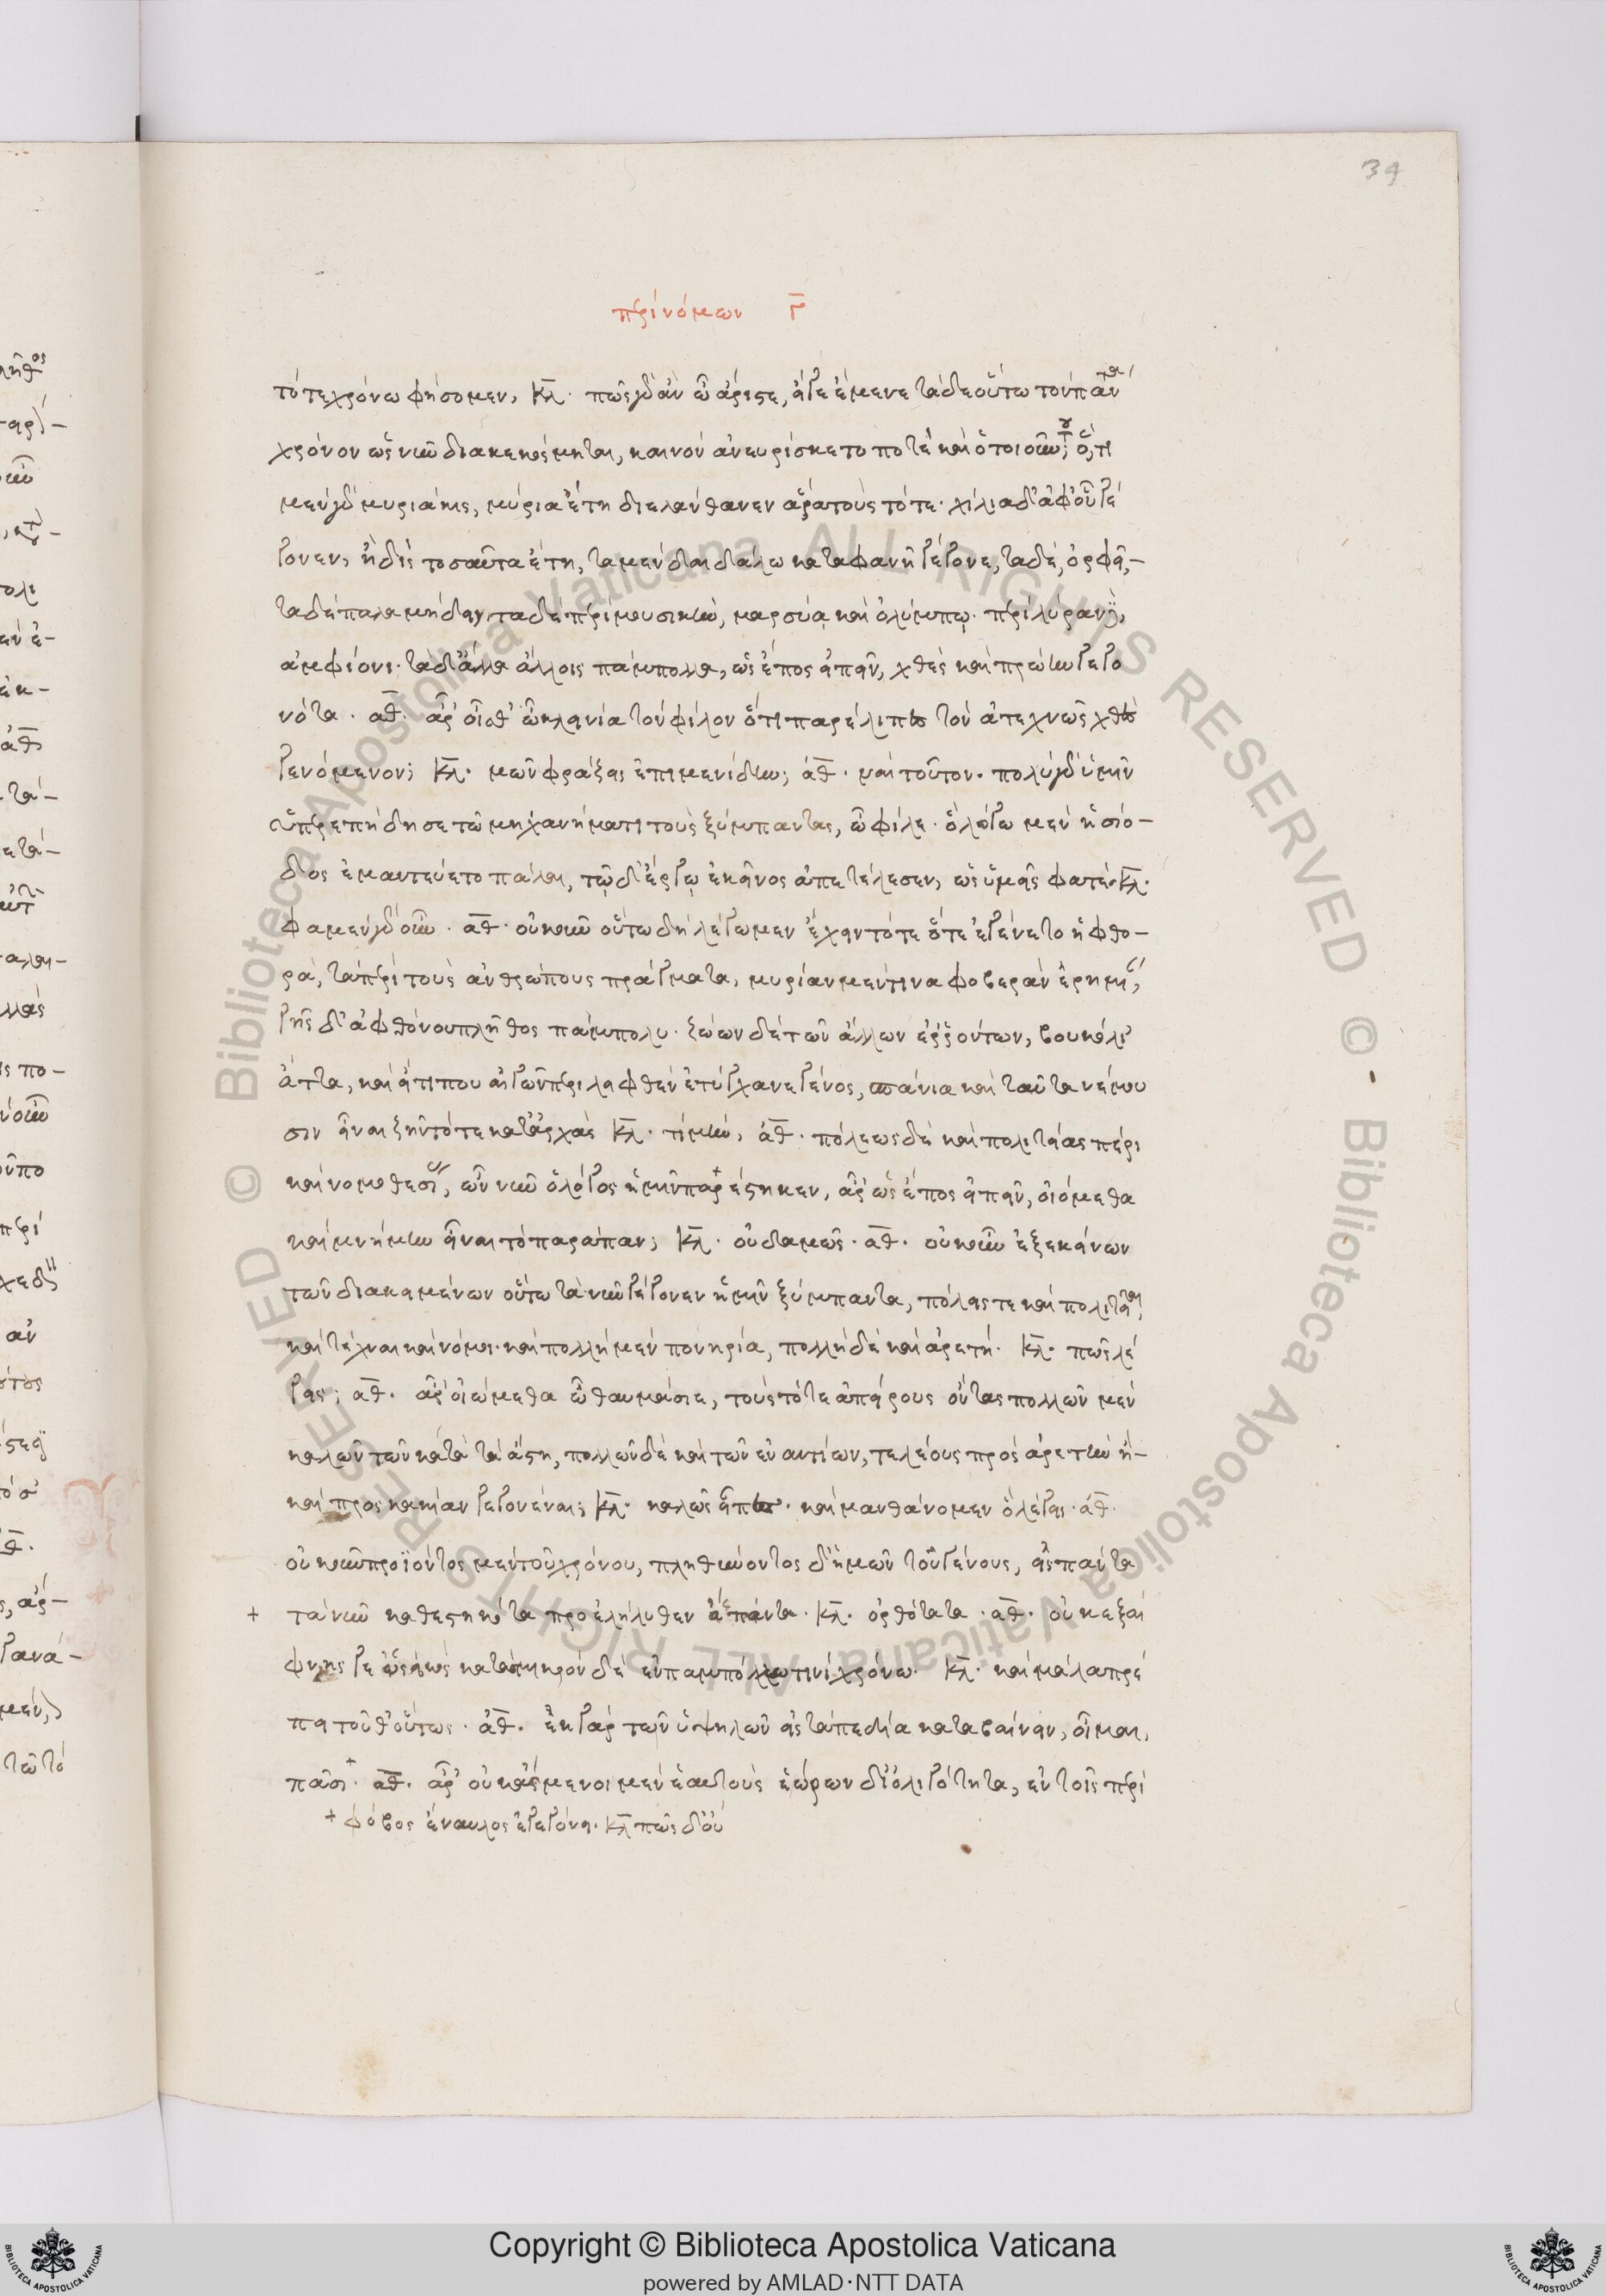 39
περὶ νόμων γ̄
τότε χρόνω φήσομεν, κλ. πῶς γὰρ ἂν ὦ ἄριστε, εἴγε ἔμενε τάδε οὕτω τὸν πάντα
χρόνον ὡς νῦν διακεκόσμηται, καινὸν ἀνευρίσκετο ποτὲ καὶ ὁτιοῦν; ὅτι
μὲν γὰρ μυριάκις, μύρια ἔτη διελάνθανεν ἄρα τοὺς τότε. χίλια δ' ἀφ' οὗ γέ
γονεν, ἢ δὶς τοσαῦτα ἔτη, τὰ μὲν δαιδάλω καταφανῆ γέγονε, τὰ δὲ, ὀρφεῖ,
τὰ δὲ παλαμήδει, τὰ δὲ περὶ μουσικὴν, μαρσύᾳ καὶ ὀλύμπῳ. περὶ λύραν δὲ,
ἀμφίονι. τὰ δ' ἄλλα ἄλλοις πάμπολλα, ὡς ἔπος εἰπεῖν, χθὲς καὶ πρώην γεγο
νότα. ἀθ. ἆρ' οἶσθ' ὦ κλεινία τὸν φίλον ὅτι παρέλιπες τὸν ἀτεχνῶς χθὲς
γενόμενον; κλ. μῶν φράζεις ἐπιμενίδην; ἀθ. ναὶ τοῦτον. πολὺ γὰρ ὑμῖν
ὑπερεπήδησε τῶ μηχανήματι τοὺς ξύμπαντας, ὦ φίλε. ὃ λόγω μὲν ἡσίο-
δος ἐμαντεύετο πάλαι, τῷ δ' ἔργῳ ἐκεῖνος ἀπετέλεσεν, ὡς ὑμεῖς φατέ. κλ.
φαμὲν γὰρ οὖν. ἀθ. οὐκοῦν οὕτω δὴ λέγωμεν ἔχειν τότε ὅτε ἐγένετο ἡ φθο-
ρὰ, τὰ περὶ τοὺς ἀνθρώπους πράγματα, μυρίαν μέν τινα φοβερὰν ἐρημίαν,
γῆς δ' ἀφθόνου πλῆθος πάμπολυ. ζώων δὲ τῶν ἄλλων ἐρρόντων, βουκόλι'
ἄττα, καὶ εἴ τί που αἰγῶν περιλειφθὲν ἐτύγχανε γένος, σπάνια καὶ ταῦτα νέμου
σιν εἶναι ζῆν τότε κατ' ἀρχάς κλ. τί μήν, ἀθ. πόλεως δὲ καὶ πολιτείας πέρι
καὶ νομοθεσίας, ὧν νῦν ὁ λόγος ἡμῖν παρέστηκεν, ἆρ' ὡς ἔπος εἰπεῖν, οἰόμεθα
καὶ μνήμην εἶναι τὸ παράπαν; κλ. οὐδαμῶς. ἀθ. οὐκοῦν ἐξ ἐκείνων
τῶν διακειμένων οὕτω τὰ νῦν γέγονεν ἡμῖν ξύμπαντα, πόλεις τε καὶ πολιτεῖαι,
καὶ τέχναι καὶ νόμοι. καὶ πολλὴ μὲν πονηρία, πολλὴ δὲ καὶ ἀρετή. κλ. πῶς λέ
γεις; ἀθ. ἆρ' οἰώμεθα ὦ θαυμάσιε, τοὺς τότε ἀπείρους ὄντας πολλῶν μὲν
καλῶν τῶν κατὰ τὰ ἄστη, πολλῶν δὲ καὶ τῶν ἐναντίων, τελέους πρὸς ἀρετὴν ἢ-
καὶ πρὸς κακίαν γεγονέναι; κλ. καλῶς εἶπες. καὶ μανθάνομεν ὃ λέγεις. ἀθ.
οὐκοῦν προϊόντος μὲν τοῦ χρόνου, πληθύοντος δ' ἡμῶν τοῦ γένους, εἰς πάντα
+ τὰ νῦν καθεστηκότα προελήλυθεν ἅπαντα. κλ. ὀρθότατα. ἀθ. οὐκ ἐξαί
φνης γε ὡς εἰκὸς κατὰ μικρὸν δὲ ἐν παμπόλλω τινὶ χρόνω. κλ. καὶ μάλα πρέ
πει τοῦθ' οὕτως. ἀθ. ἐκ γὰρ τῶν ὑψηλῶν εἰς τὰ πεδία καταβαίνειν, οἶμαι,
πᾶσι +. ἀθ. ἆρ' οὐκ ἄσμενοι μὲν ἑαυτοὺς ἑώρων δι' ὀλιγότητα, ἐν τοῖς περὶ
+ φόβος ἔναυλος ἐγεγόνει. κλ πῶς δ' οὔ